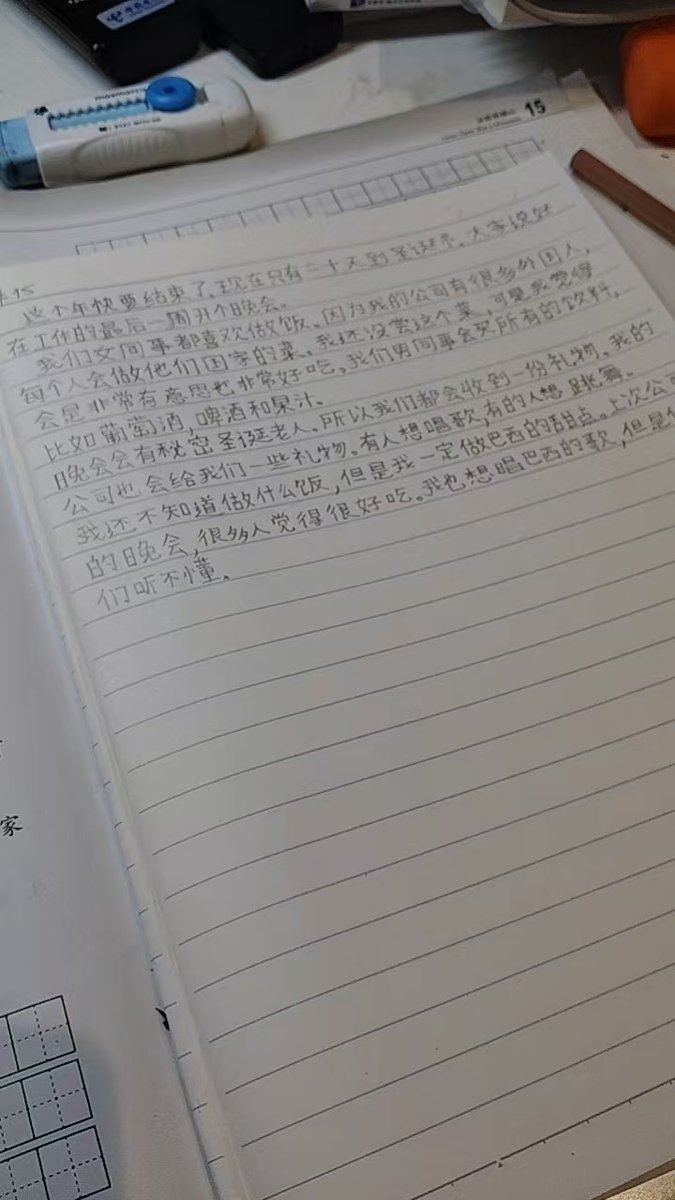 15
#15
这个年快要结束了,现在只有二十天到圣诞节。大家说好
在工作的最后一周开个晚会。
我们女同事都喜欢做饭。因为我的公司有很多外国人,
每个人会做他们国家的菜。我还没尝这个菜,可是我觉得
会是非常有意思也非常好吃。我们男同事会买所有的饮料,
比如葡萄酒,啤酒和果汁。
晚会会有秘密圣诞老人。所以我们都会收到一份礼物。我的
公司也会给我们一些礼物。有人想唱歌,有的人想跳舞。
我还不知道做什么饭,但是我一定做巴西的甜点。上次公司
的晚会,很多人觉得很好吃。我也想唱巴西的歌,但是他
们听不懂。
家